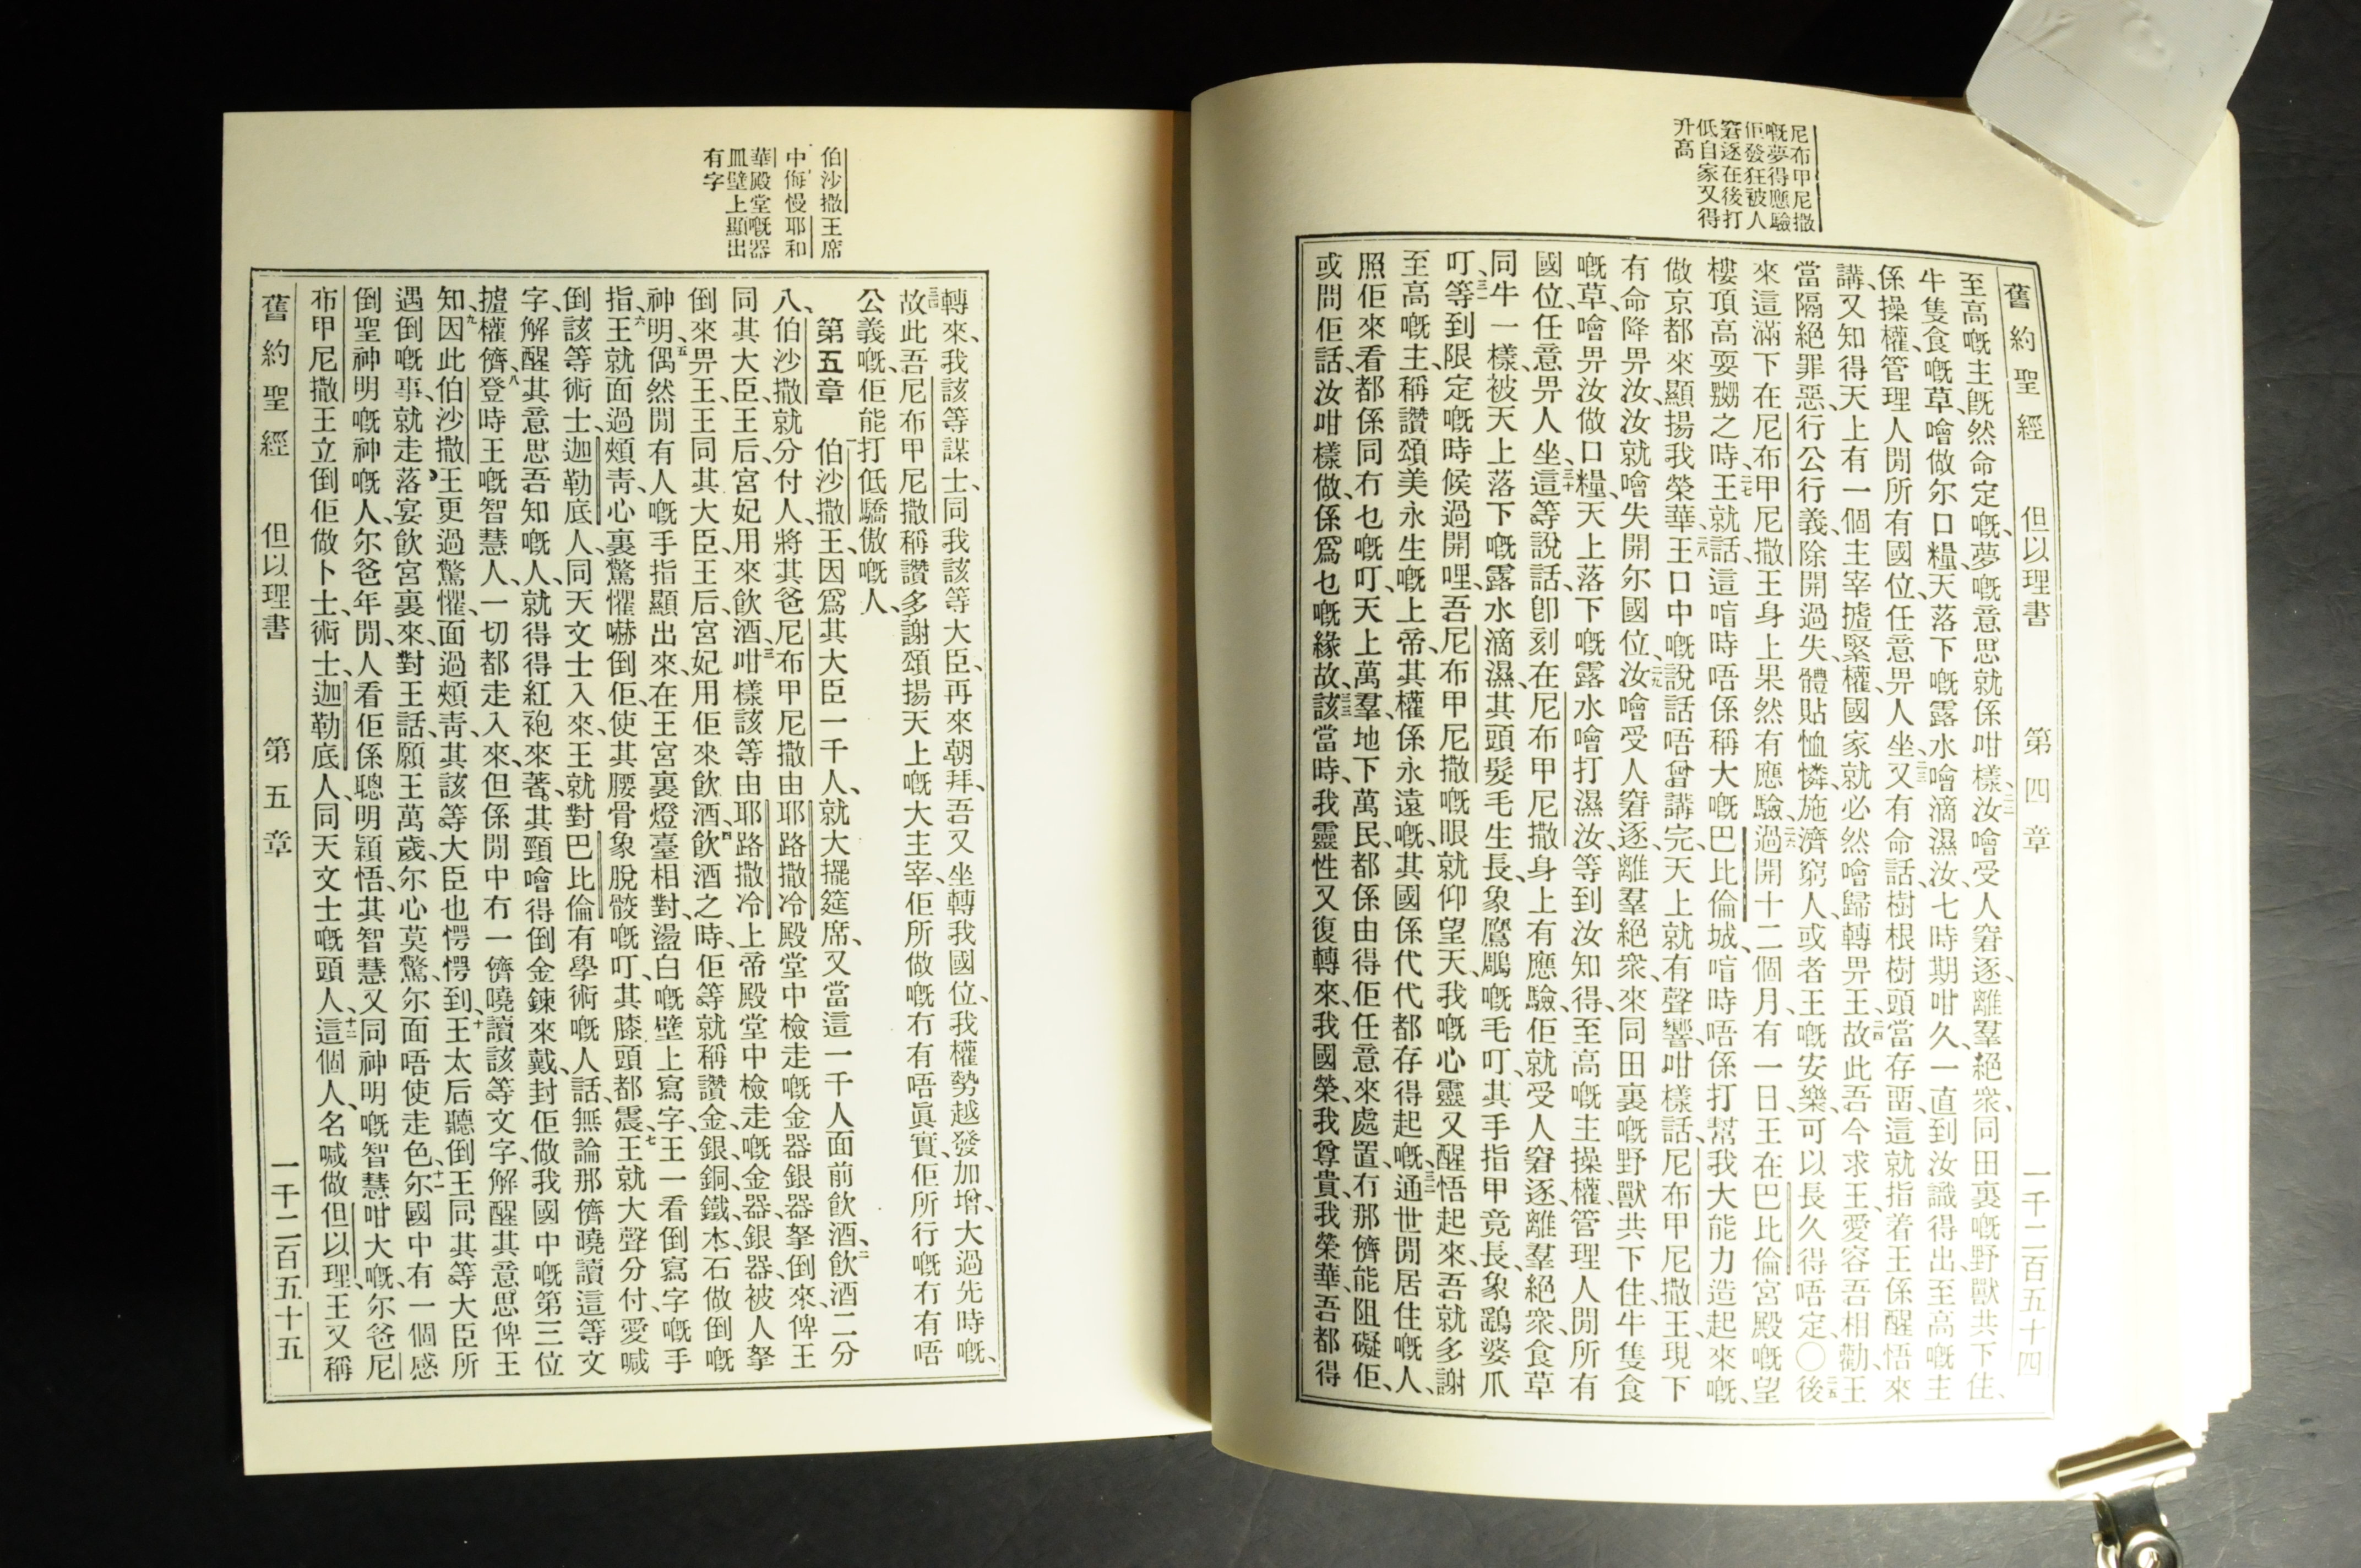 尼布甲尼撒
嘅夢得應驗
佢發狂被人
窘逐在後打
低自家又得
升高
舊約聖經 但以理書 第四章 一千二百五十四
至高嘅主既然命定嘅、夢嘅意思就係咁樣、汝噲受人窘逐、離羣絕衆、同田裏嘅野獸共下住、
牛隻食嘅草、噲做尔口糧、天落下嘅露水噲滴濕汝、七時期咁久、一直到汝識得出至高嘅主
係操權、管理人間所有國位、任意畀人坐、又有命話、樹根樹頭當存畱、這就指着王係醒悟來
講、又知得天上有一個主宰㨿緊權、國家就必然噲歸轉畀王、故此吾今求王、愛容吾相勸、王
當隔絕罪惡、行公行義、除開過失、體貼恤憐、施濟窮人、或者王嘅安樂、可以長久得唔定〇後
來這滿下在尼布甲尼撒王身上果然有應驗、過開十二個月、有一日、王在巴比倫宮殿嘅望
樓頂高耍嬲之時、王就話、這喑時唔係稱大嘅巴比倫城、喑時唔係打幫我大能力造起來嘅、
做京都來顯揚我榮華、王口中嘅說話唔曾講完、天上就有聲響咁樣話、尼布甲尼撒王、現下
有命降畀汝、汝就噲失開尔國位、汝噲受人窘逐、離羣絕衆、來同田裏嘅野獸共下住、牛隻食
嘅草、噲畀汝做口糧、天上落下嘅露水噲打濕汝、等到汝知得、至高嘅主操權、管理人間所有
國位、任意畀人坐、這等說話、卽刻在尼布甲尼撒身上有應驗、佢就受人窘逐、離羣絕衆、食草
同牛一樣、被天上落下嘅露水滴濕、其頭髮毛生長、象鷹鵰嘅毛叮、其手指甲竟長、象鷂婆爪
叮、等到限定嘅時候過開哩、吾尼布甲尼撒嘅眼就仰望天、我嘅心靈又醒悟起來、吾就多謝
至高嘅主、稱讚頌美永生嘅上帝、其權係永遠嘅、其國係代代都存得起嘅、通世間居住嘅人、
照佢來看都係同冇乜嘅叮、天上萬羣、地下萬民、都係由得佢任意來處置、冇那儕能阻礙佢、
或問佢話、汝咁樣做、係爲乜嘅緣故、該當時、我靈性又復轉來、我國榮、我尊貴、我榮華、吾都得
伯沙撒王席
中侮慢耶和
華殿堂嘅器
皿壁上顯出
有字
轉來、我該等謀士、同我該等大臣、再來朝拜、吾又坐轉我國位、我權勢越發加增、大過先時嘅、
故此吾尼布甲尼撒稱讚多謝頌揚天上嘅大主宰、佢所做嘅冇有唔眞實、佢所行嘅冇有唔
公義嘅、佢能打低驕傲嘅人、
第五章 伯沙撒王、因爲其大臣一千人、就大擺筵席、又當這一千人面前飲酒、飲酒二分
八、伯沙撒就分付人、將其爸尼布甲尼撒由耶路撒冷殿堂中檢走嘅金器銀器拏倒來、俾王
同其大臣、王后、宮妃用來飲酒、咁樣該等由耶路撒冷上帝殿堂中檢走嘅金器、銀器、被人拏
倒來畀王、王同其大臣、王后、宮妃用佢來飲酒、飲酒之時、佢等就稱讚金、銀、銅、鐵、木、石做倒嘅
神明、偶然間有人嘅手指顯出來、在王宮裏燈臺相對、盪白嘅壁上寫字、王一看倒寫字嘅手
指、王就面過頰靑、心裏驚懼嚇倒佢、使其腰骨象脫骹嘅叮、其膝頭都震、王就大聲分付、愛喊
倒該等術士、迦勒底人、同天文士入來、王就對巴比倫有學術嘅人話、無論那儕曉讀這等文
字、解醒其意思吾知嘅人、就得得紅袍來著、其頸噲得倒金鍊來戴、封佢做我國中嘅第三位
㨿權儕、登時王嘅智慧人、一切都走入來、但係間中冇一儕曉讀該等文字、解醒其意思俾王
知、因此伯沙撒王更過驚懼、面過頰靑、其該等大臣也愕愕到、王太后聽倒王同其等大臣所
遇倒嘅事、就走落宴飲宮裏來、對王話、願王萬歲、尔心莫驚、尔面唔使走色、尔國中有一個感
倒聖神明嘅神嘅人、尔爸年間、人看佢係聰明穎悟、其智慧又同神明嘅智慧咁大嘅、尔爸尼
布甲尼撒王立倒佢做卜士、術士、迦勒底人、同天文士嘅頭人、這個人、名喊做但以理、王又稱
舊約聖經 但以理書 第五章 一千二百五十五